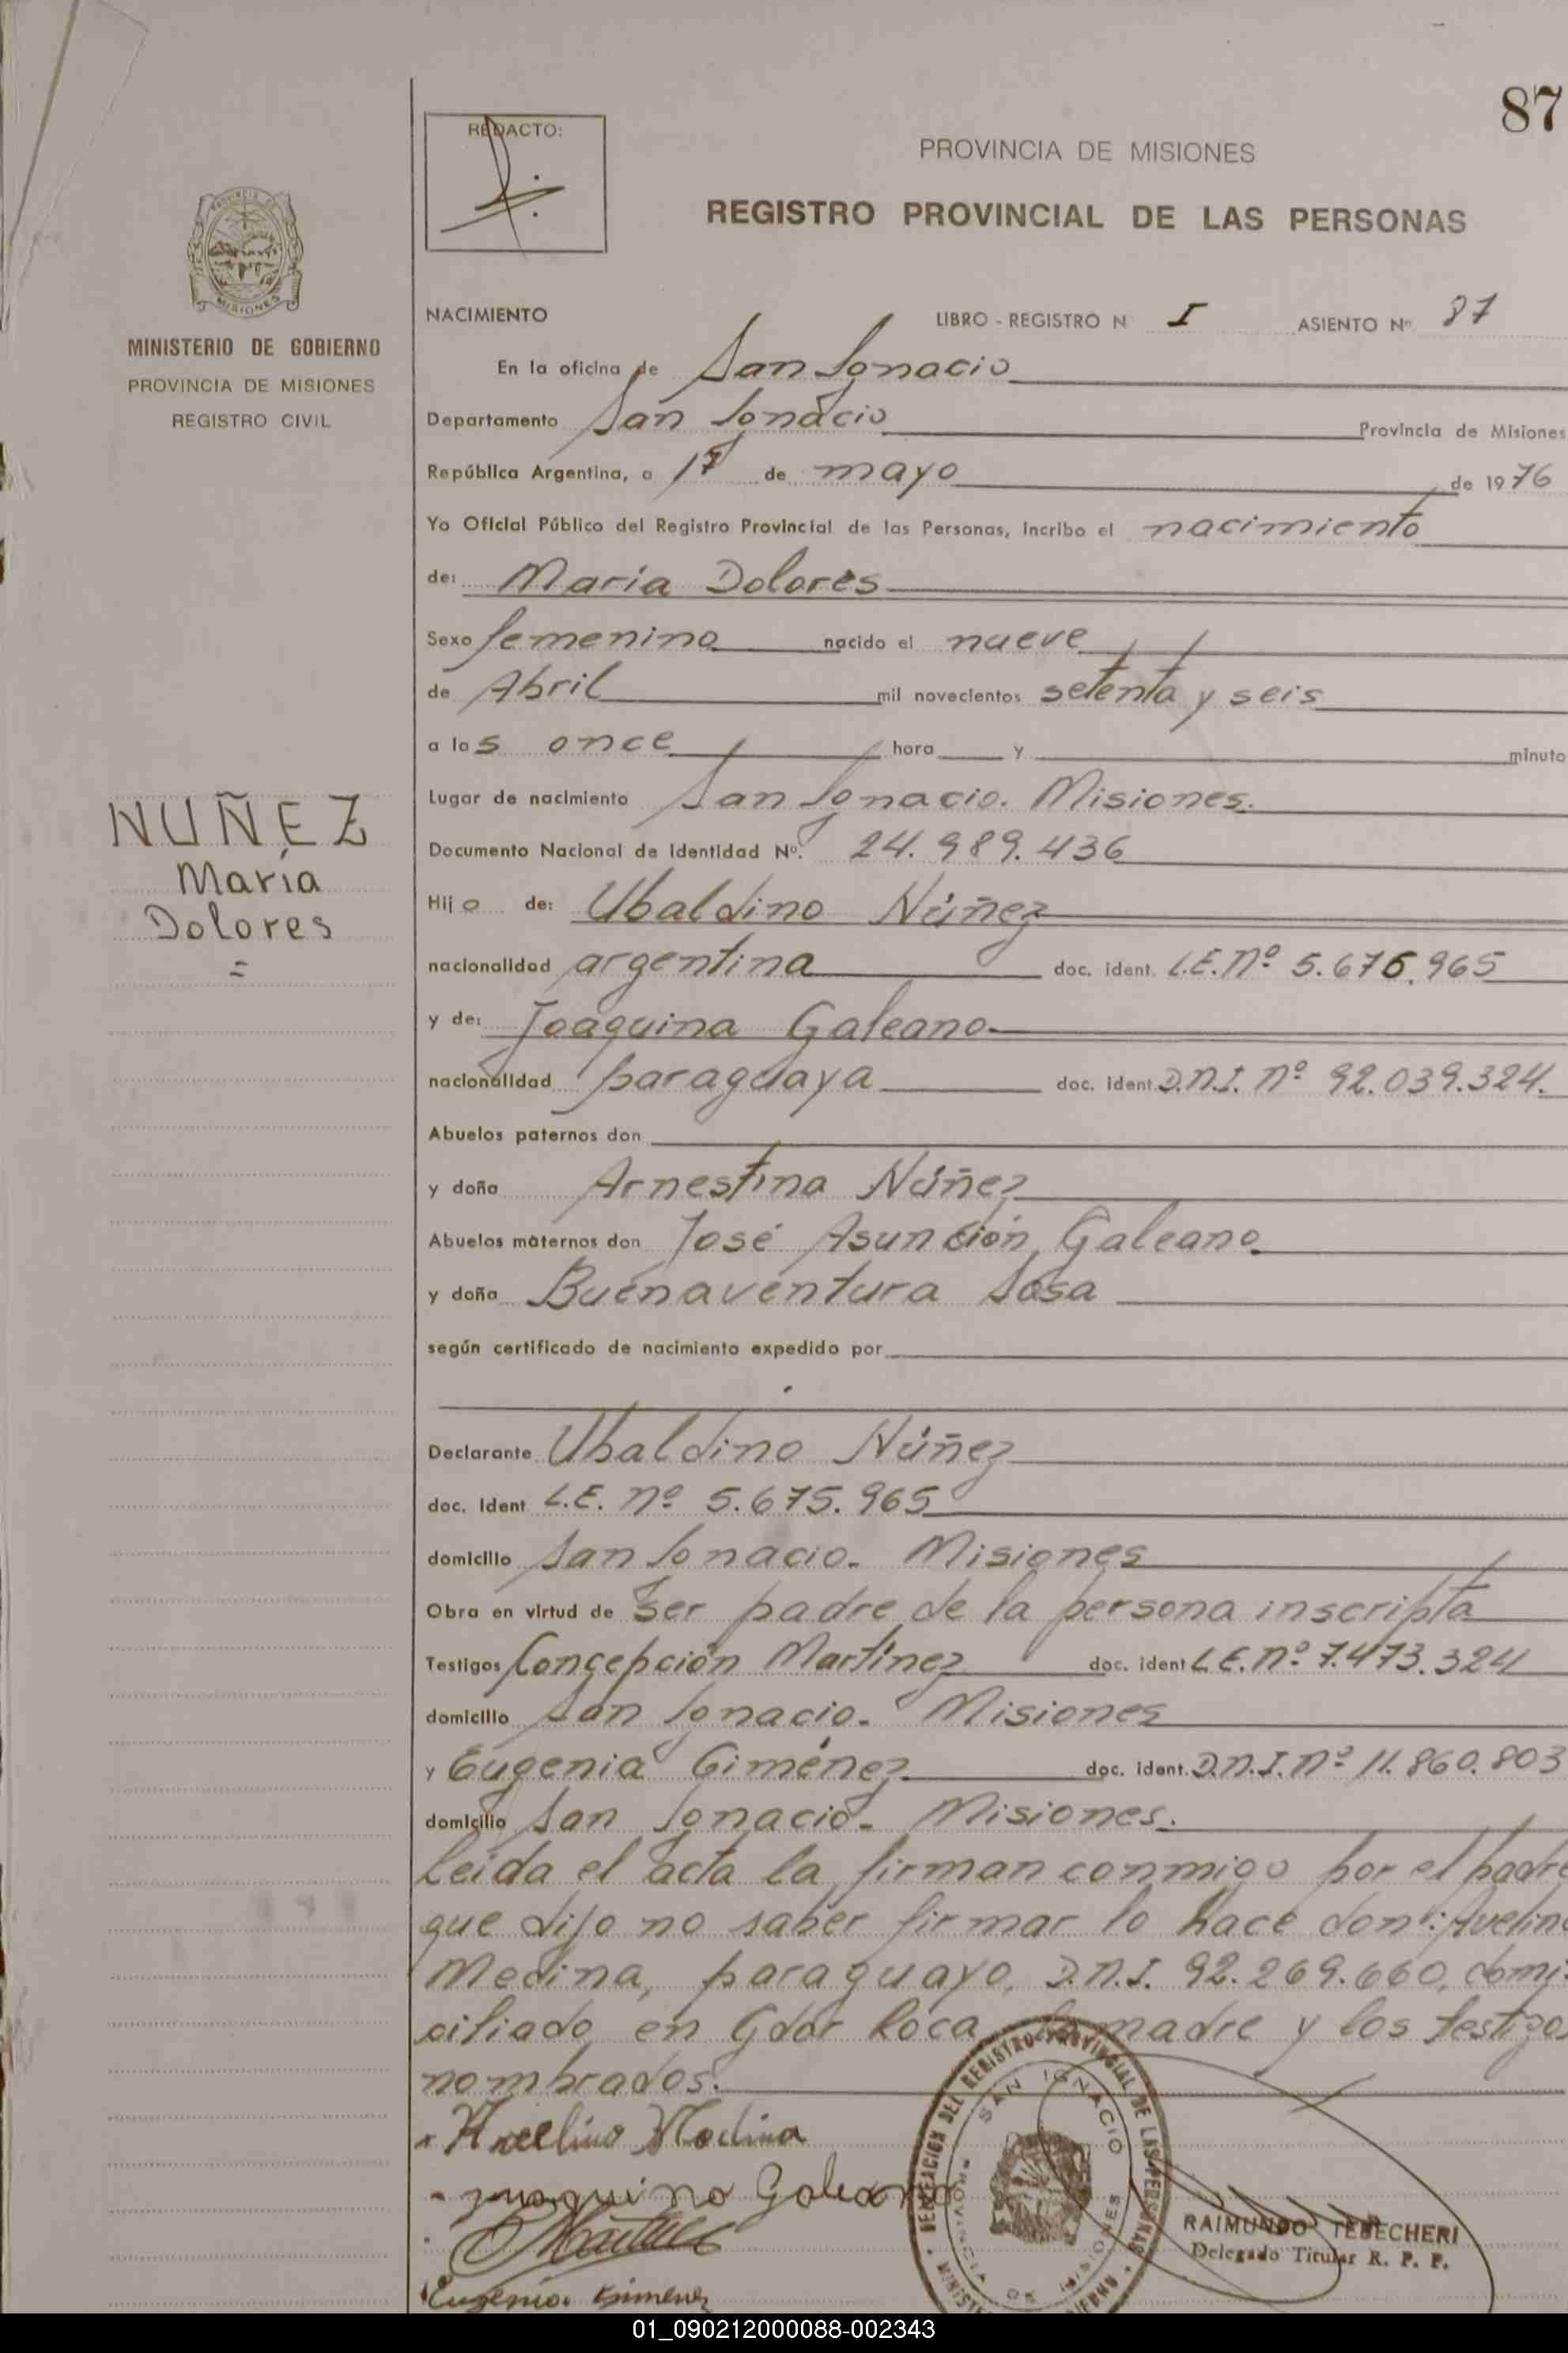 87
REDACTO:
PROVINCIA DE MISIONES
REGISTRO PROVINCIAL DE LAS PERSONAS
MISIONES
MINISTERIO DE GOBIERNO
PROVINCIA DE MISIONES
REGISTRO CIVIL
NUÑEZ
María
Dolores
=
NACIMIENTO LIBRO - REGISTRO N I ASIENTO Nº 87
En la oficina de San Ignacio
Departamento San Ignacio Provincia de Misiones
República Argentina, a 17 de mayo de 1976
Yo Oficial Público del Registro Provincial de las Personas, incribo el nacimiento
de: María Dolores
Sexo femenino nacido el nueve
de Abril mil novecientos setenta y seis
a las once hora y minuto
Lugar de nacimiento San Ignacio. Misiones.
Documento Nacional de Identidad Nº. 24.989.436
Hijo de: Ubaldino Núñez
nacionalidad argentina doc. ident. L.E. Nº 5.675.965
y de: Joaquina Galeano
nacionalidad paraguaya doc. ident. D.N.I. Nº 92.039.324.
Abuelos paternos don
y doña Arnestina Núñez
Abuelos maternos don José Asunción Galeano
y doña Buenaventura Sosa
según certificado de nacimiento expedido por
Declarante Ubaldino Núñez
doc. Ident L.E. Nº 5.675.965
domicilio San Ignacio. Misiones
Obra en virtud de ser padre de la persona inscripta
Testigos Concepción Martínez doc. ident L.E. Nº 7.473.324
domicilio San Ignacio. Misiones
y Eugenia Giménez doc. ident. D.N.I. Nº 11.860.803
domicilio San Ignacio. Misiones.
Leída el acta la firman conmigo por el padre
que dijo no saber firmar lo hace don: Avelino
Medina, paraguayo, D.N.I. 92.269.660, domi-
ciliado en Gdor Roca, la madre y los testigos
nombrados.
Avelino Medina
Joaquina Galeano
Eugenia Gimenez
DELEGACION DEL REGISTRO PROVINCIAL DE LAS PERSONAS
SAN IGNACIO
PROVINCIA DE MISIONES
RAIMUNDO TEBECHERI
Delegado Titular R. P. P.
01_090212000088-002343